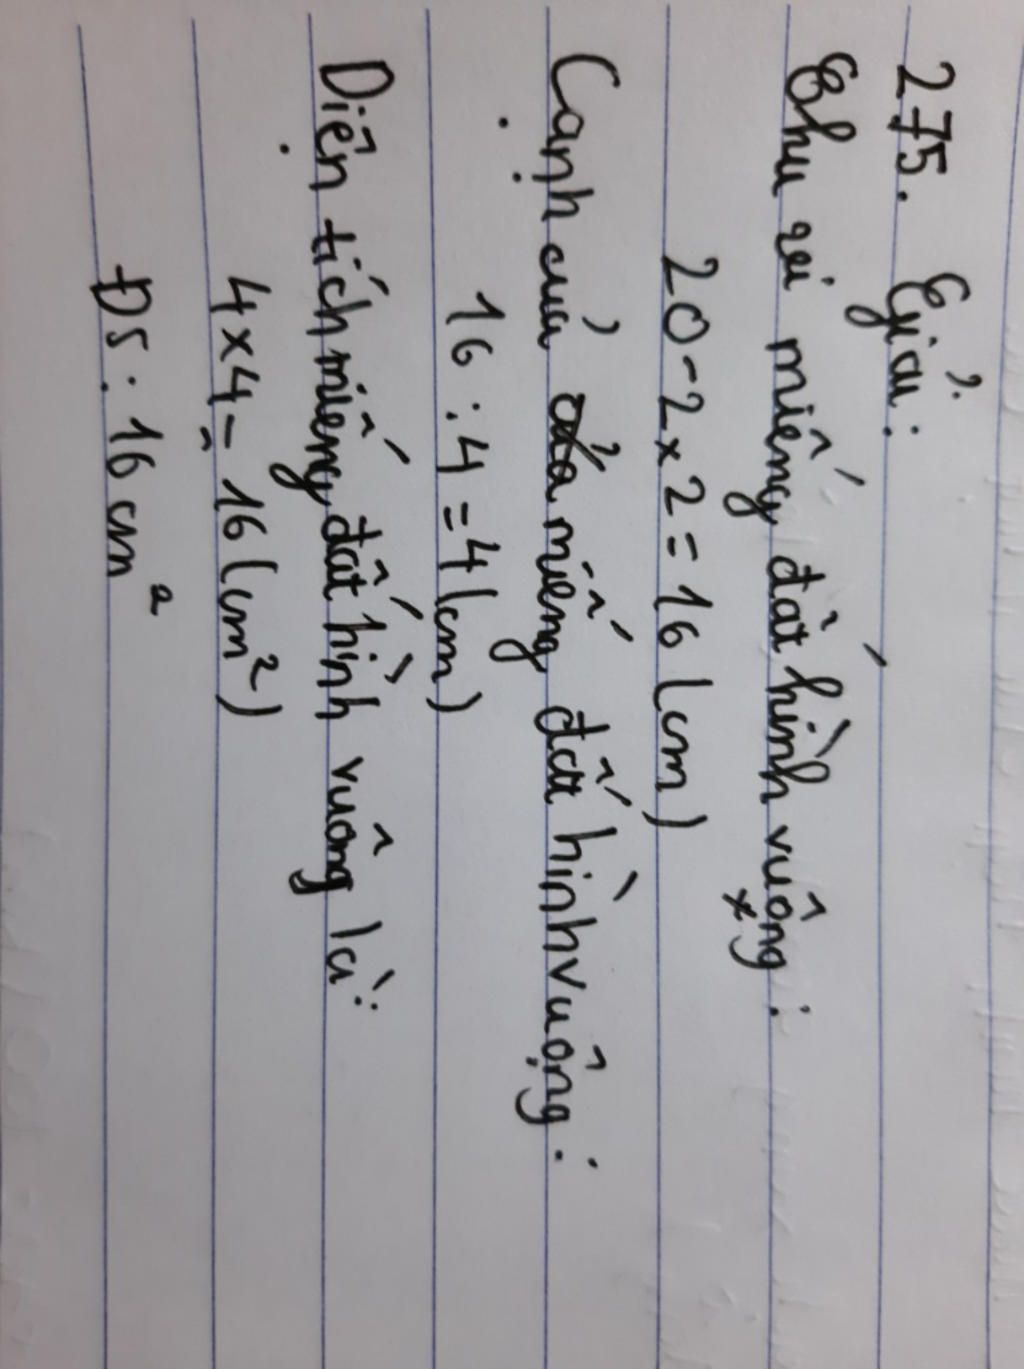 275. Giải:
Chu vi miếng đất hình vuông:
20-2x2=16 (cm)
Cạnh của miếng đất hình vuông:
16 : 4 = 4 (cm)
Diện tích miếng đất hình vuông là:
4x4=16 (cm²)
ĐS: 16 cm²